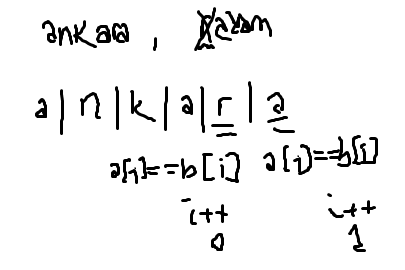 ankaa ,
a|n|k|a|r|a
a[i]==b[i] a[i]==b[i]
i++ i++
0 1